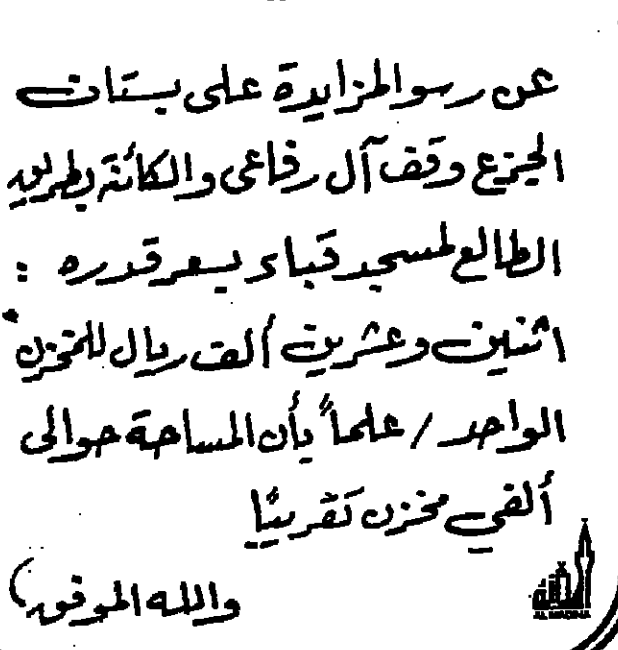 عن رسو المزايدة على بستان
الجزع وقف آل رفاعى والكائنة بطريق
الطالع لمسجد قباء بسعر قدره :
اثنين وعشرين ألف ريال للمخزن
الواحد / علماً بأن المساحة حوالى
ألفي مخزن تقريبًا
والله الموفق)
المدينة
AL MADINA